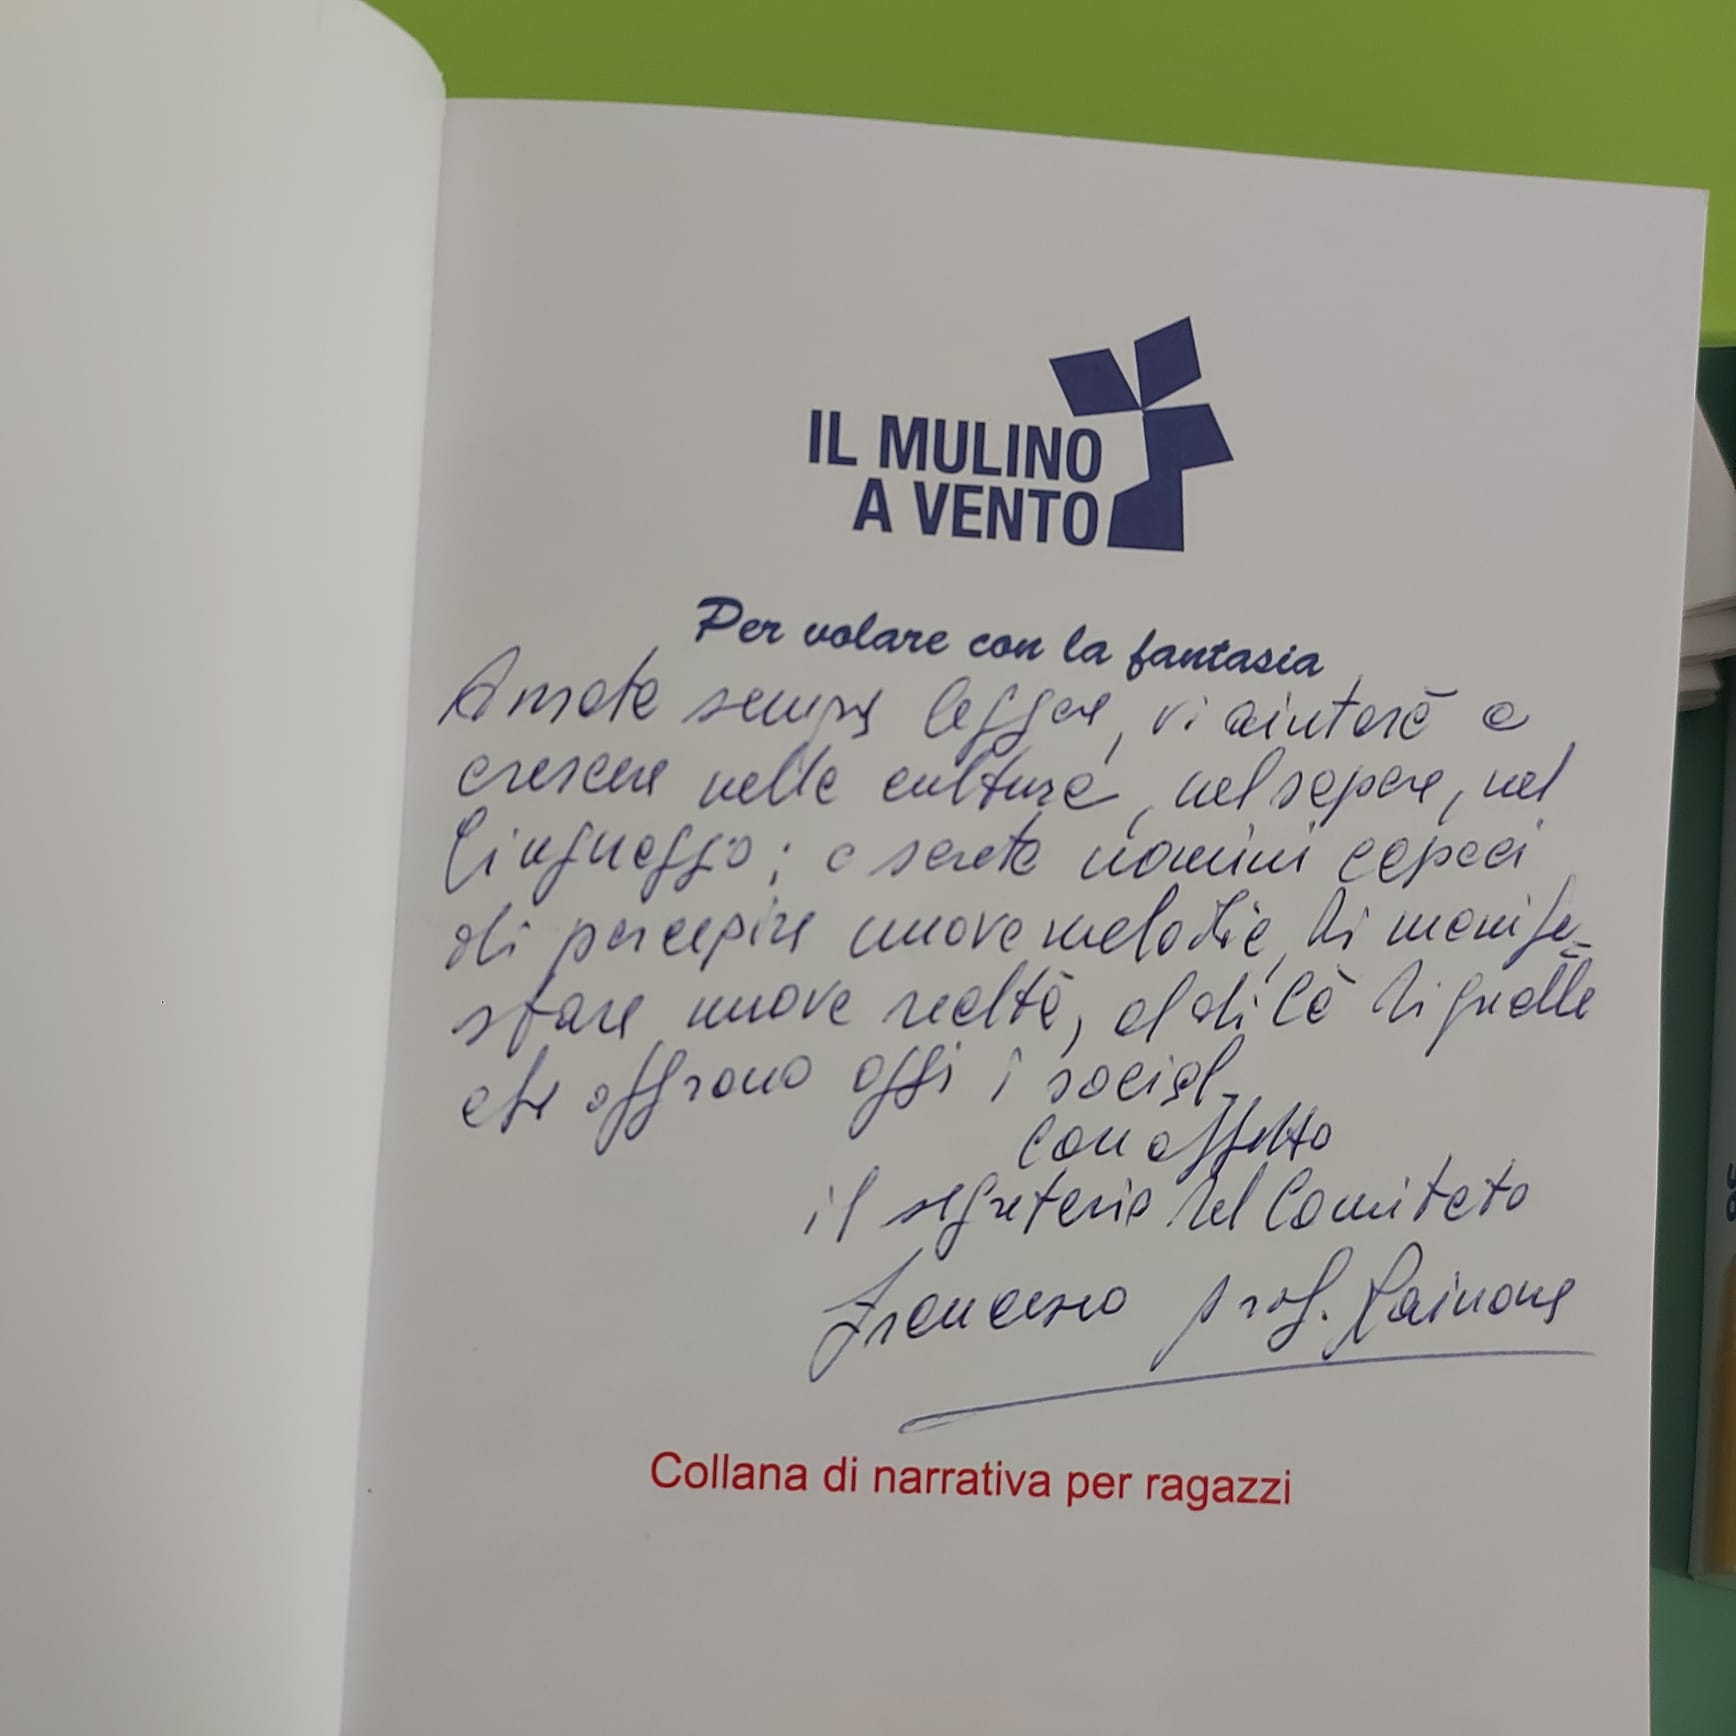 IL MULINO
A VENTO
Per volare con la fantasia
Amate sempre leggere, vi aiuterà a
crescere nella cultura, nel sapere, nel
linguaggio; e sarete uomini capaci
di percepire nuove melodie, di manife-
stare nuove realtà, al di là di quelle
che offrono oggi i social.
Con affetto
il segretario del Comitato
Francesco prof. Rainone
Collana di narrativa per ragazzi